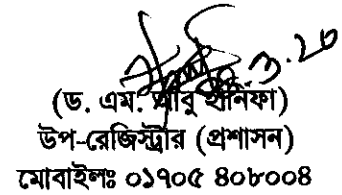 (ড. এম. আবু হানিফা)
উপ-রেজিস্ট্রার (প্রশাসন)
মোবাইলঃ ০১৭০৫ ৪০৮০০৪